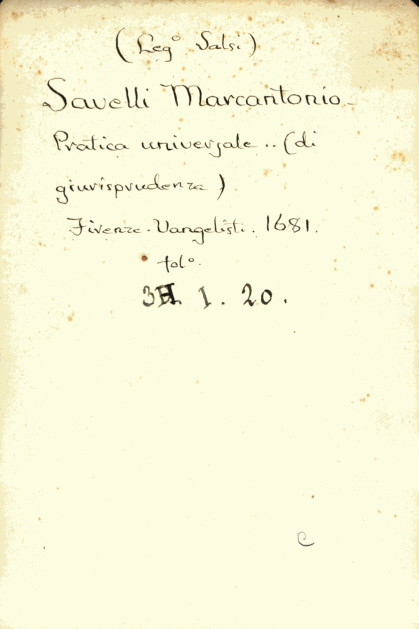 (Leg° Salsi)
Savelli Marcantonio.
Pratica universale .. (di
giurisprudenza)
Firenze. Vangelisti. 1681.
fol°.
3H. 1. 20.
C